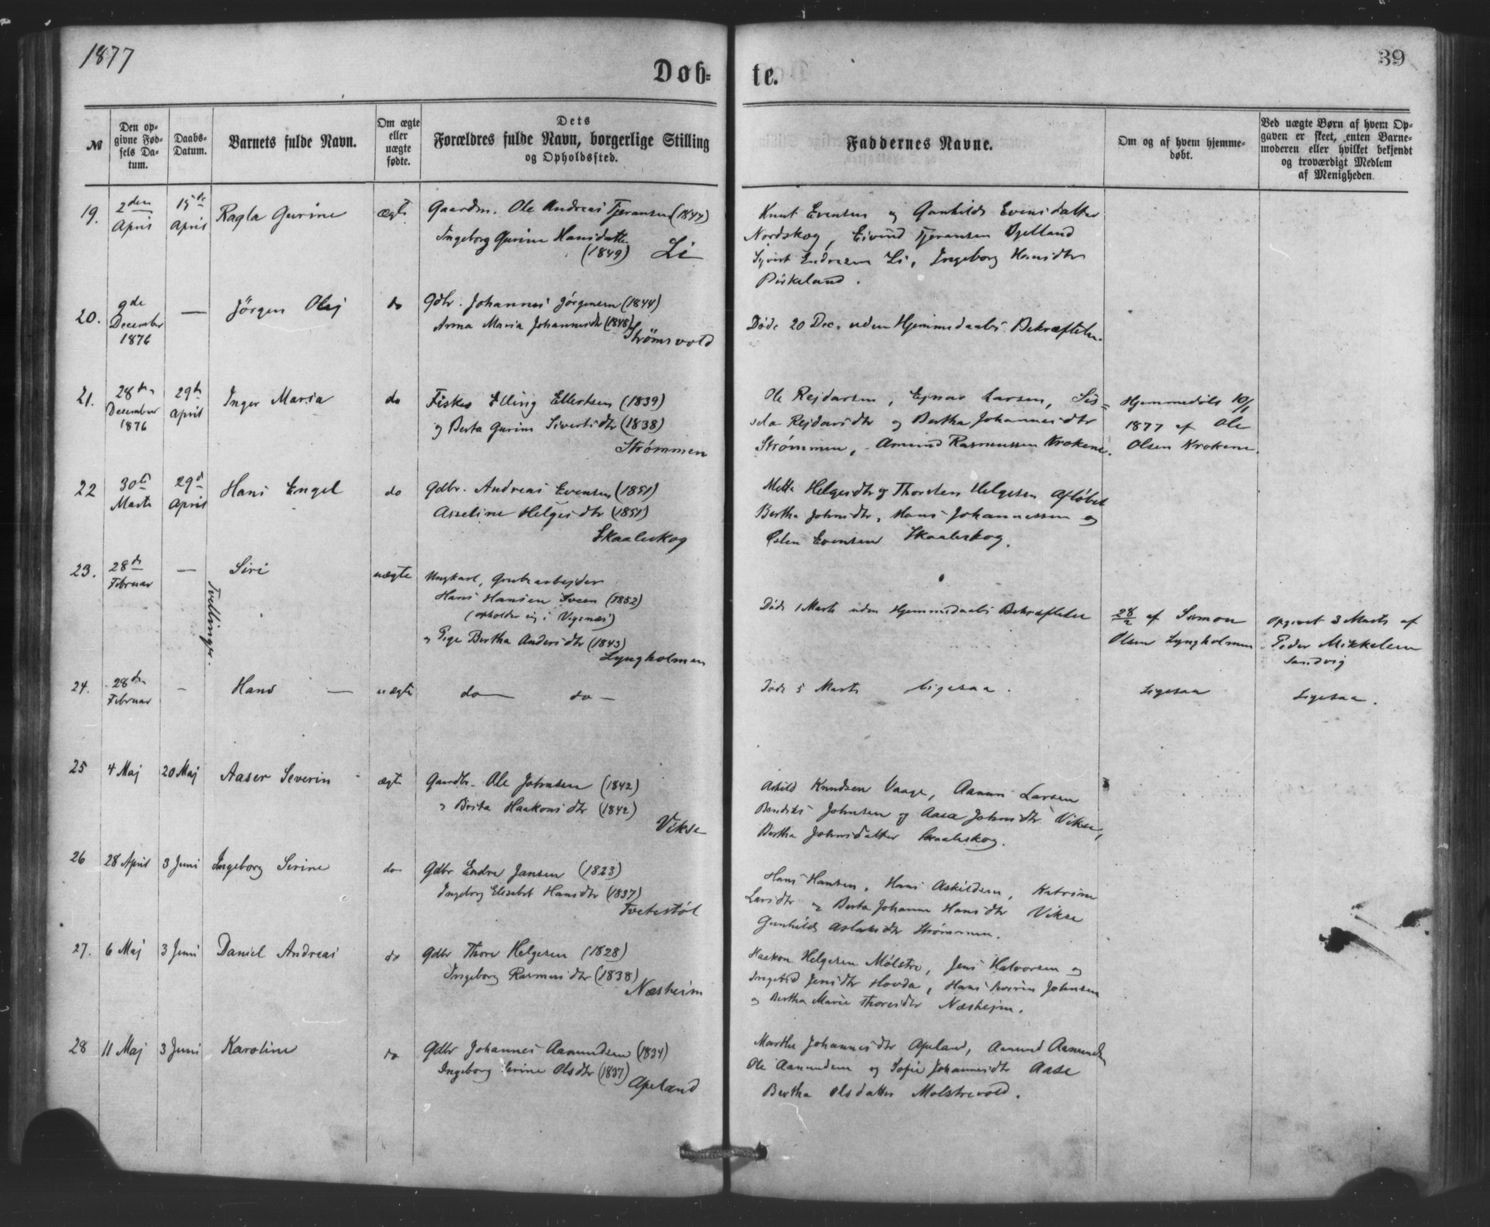 1877
39
Døb-
te.
№
Den op-
givne Fød-
sels Da-
tum.
Daabs-
Datum.
Barnets fulde Navn.
Om ægte
eller
uægte
fødte.
Dets
Forældres fulde Navn, borgerlige Stilling
og Opholdssted.
Faddernes Navne.
Om og af hvem hjemme-
døbt.
Ved uægte Børn af hvem Op-
gaven er skeet, enten Barne-
moderen eller hvilket bekjendt
og troværdigt Medlem
af Menigheden.
19.
2den
April
15de
April
Ragla Gurine
ægte
Gaardm. Ole Andreas Tjeransen (1844)
Ingeborg Gurine Hansdatter
(1849) Li
Knut Evensen og Gunhilde Evensdatter
Nordskog, Eivind Tjeransen
Sjvert Endresen Li, Ingeborg Hansdtr
Piskeland.
20.
9de
December
1876
—
Jörgen Olaj
do
Gdbr. Johannes Jörgensen (1844)
Anna Maria Johannesdtr (1848)
Strömsvold
Døde 20 Dec. uden Hjemmedaabs Bekræftelse.
21.
28de
December
1876
29de
April
Inger Maria
do
Fisker Elling Ellertsen (1839)
og Berta Gurine Sivertsdtr (1838)
Strømmen
Ole Rejdarsen, Ejnar Larsen, Sis-
sela Rejdarsdtr og Bertha Johannesdtr
Strømmen, Amund Rasmussen Krokene.
Hjemmedøbt 10/1
1877 af Ole
Olsen Krokene.
22
30te
Marts
29de
April
Hans Engel
do
Gdbr. Andreas Evensen (1851)
Asseline Helgesdtr (1851)
Skaaleskog
Mette Helgesdtr og Thorsten Helgesen
Bertha Johnsdtr, Hans Johannessen og
Evensen Skaaleskog.
23.
28de
Februar
—
Tvillinger.
Siri
uægte
Ungkarl, Grubearbejder
Hans Hansen Sveen (1852)
(opholder sig i Vigsnæs)
og Pige Bertha Andersdtr (1843)
Lyngholmen
Døde 1 Marts uden Hjemmedaabs Bekræftelse
28/2 af Simon
Olsen Lyngholmen
Opgivet 3 Marts af
Peder Mikkelsen
Sandvig
24.
28de
Februar
—
Hans —
uægte
do — do —
Døde 5 Marts ligesaa.
Ligesaa
Ligesaa.
25
4 Maj
20 Maj
Aaser Severin
ægte
Gaardbr. Ole Johnsen (1842)
og Brita Haakonsdtr (1842)
Vikse
Askild Knudsen Vaage, Aamun Larsen
Johnsen og Aasa Johnsdtr Vikse,
Bertha Johnsdatter Skaaleskog.
26
28 April
3 Juni
Ingeborg Serine
do
Gdbr Endre Jansen (1823)
Ingeborg Elisabet Hansdtr (1837)
Tvetestøl
Hans Hansen, Hans Askildsen, Katrine
Larsdtr og Berta Johanne Hansdtr Vikse
Gunhilde Aslaksdtr Strömmen.
27.
6 Maj
3 Juni
Daniel Andreas
do
Gdbr Thore Helgesen (1828)
Ingeborg Rasmusdtr (1838)
Næsheim
Haakon Helgesen Mølstre, Jens Halvorsen og
Ingebid Jensdtr Hovda, Hans Johnsen
og Bertha Marie Thoresdtr Næshejm.
28
11 Maj
3 Juni
Karoline
do
Gdbr Johannes Aamundsen (1834)
Ingeborg Serine Olsdtr (1837)
Apeland
Marthe Johannesdtr Apeland, Aamund Aamundsen
Ole Aamundsen og Sofie Johannesdtr Aase
Bertha Olsdatter Molstrevold.